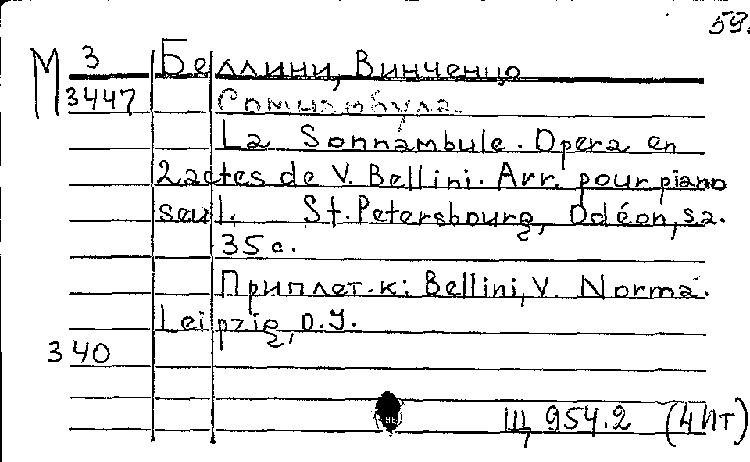 59.
М 3 Беллини, Винченцо
3447 Сомнамбула.
La Sonnambule. Opera en
2 actes de V. Bellini. Arr. pour piano
seul. St. Petersbourg, Odéon, s.a.
35 с.
Приплет. к: Bellini, V. Norma.
Leipzig, o.J.
340
Щ 954.2 (4Ит)